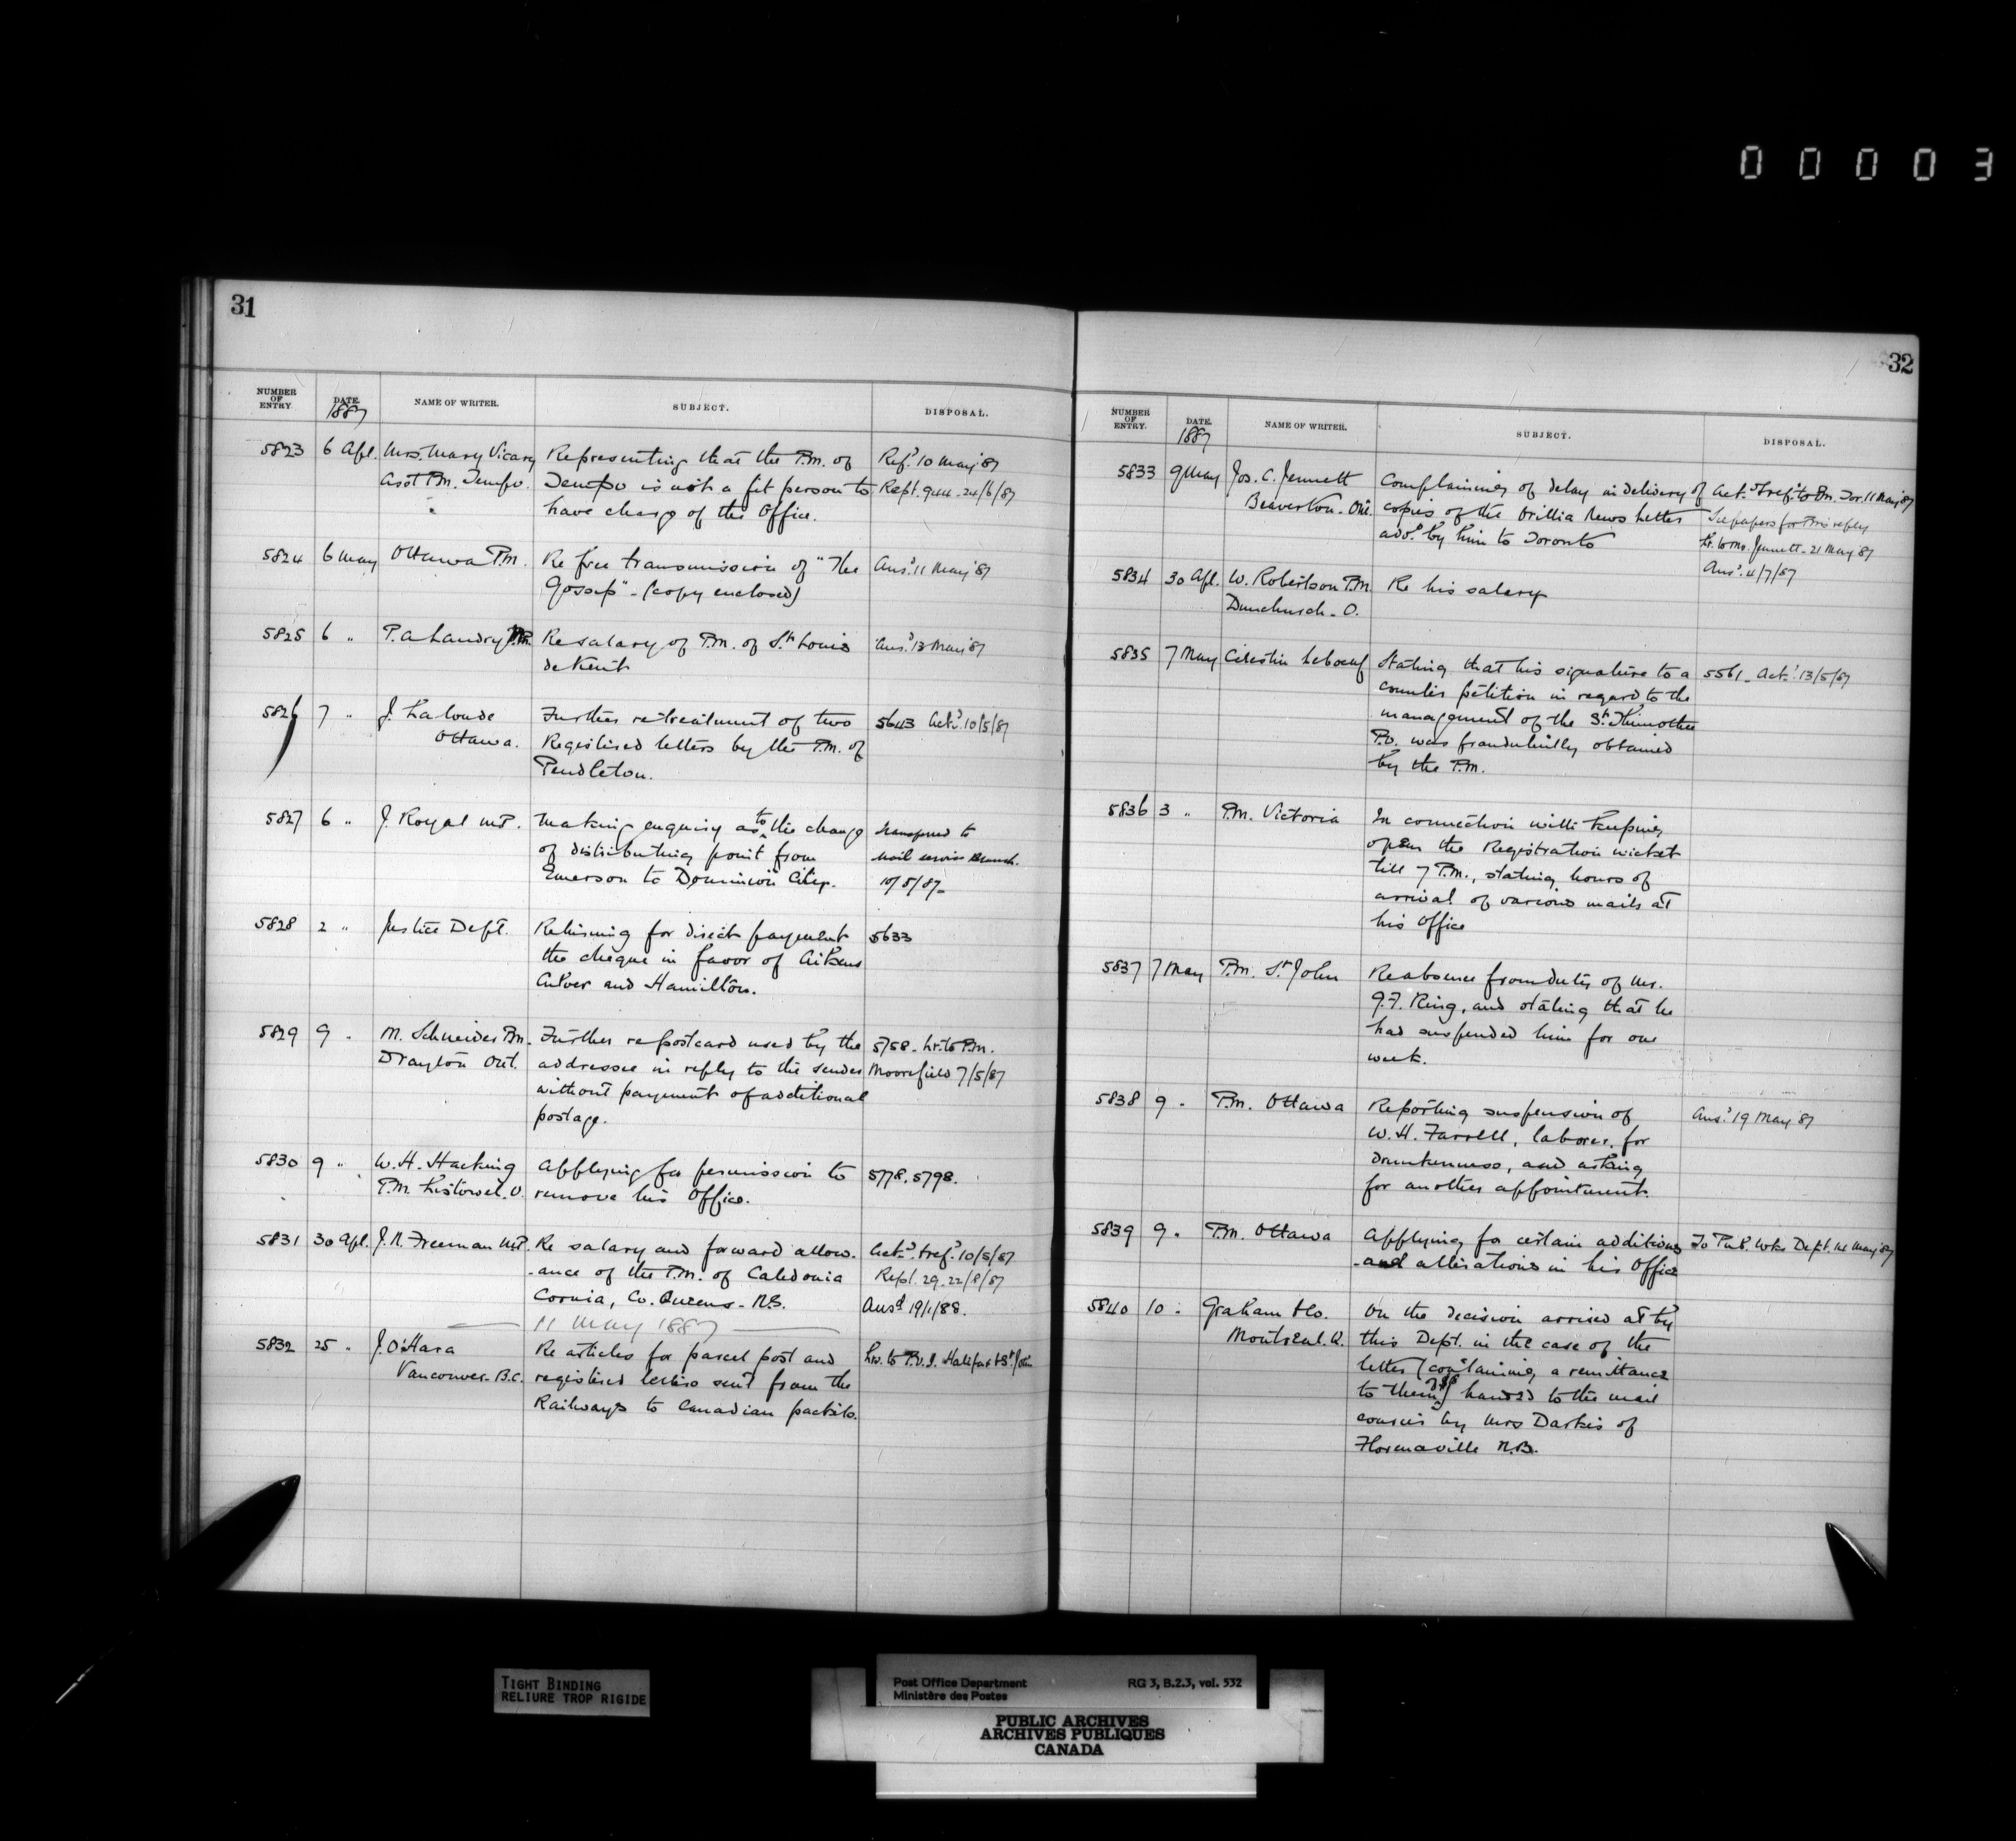 00003
31
NUMBER OF ENTRY. DATE. 1887 NAME OF WRITER. SUBJECT. DISPOSAL.
5823 6 Apl. Mrs. Mary Vicary Representing that the P.M. of Ref.d 10 May '87
Asst P.M. Tempo. Tempo is not a fit person to Rept. 944. 24/6/87
have charge of the Office.
5824 6 May Ottawa P.M. Re free transmission of "The Ans.d 11 May '87
Gossip" - (copy enclosed)
5825 6 " P. A. Landry M.P. Re salary of P.M. of St. Louis Ans.d 13 May '87
de Kent
5826 7 " J. Lalonde Further re treatment of two 5643 Ack.d 10/5/87
Ottawa. Registered letters by the P.M. of
Pendleton.
5827 6 " J. Royal M.P. Making enquiry as to the change Transferred to
of distributing point from Mail service Branch.
Emerson to Dominion City. 10/5/87
5828 2 " Justice Dept. Returning for direct payment 5633
the cheque in favor of Aikens
Culver and Hamilton.
5829 9 " M. Schneider P.M. Further re postcard used by the 5758. Lr. to P.M.
Drayton Ont. addressee in reply to the sender Moorefield 7/5/87
without payment of additional
postage.
5830 9 " W. H. Hacking Applying for permission to 5778. 5798.
P.M. Listowel. O. remove his Office.
5831 30 Apl. J. N. Freeman M.P. Re salary and forward allow- Ack.d & ref.d 10/5/87
-ance of the P.M. of Caledonia Rept. 29. 22/8/87
Corner, Co. Queens - N.S. Ansd 19/1/88.
11 May 1887
5832 25 " J. O'Hara Re articles for parcel post and Lrs. to P.O.I. Halifax & St. John
Vancouver. B.C. registered letters sent from the
Railways to Canadian packets.
32
NUMBER OF ENTRY. DATE. 1887 NAME OF WRITER. SUBJECT. DISPOSAL.
5833 9 May Jos. C. Jennett Complaining of delay in delivery of Ack.d & ref.d to P.M. Tor. 11 May '87
Beaverton. Ont. copies of the Orillia News Letter See papers for P.M.'s reply
add.d by him to Toronto Lr. to Mr. Jennett - 21 May '87
Ans.d 4/7/87
5834 30 Apl. W. Robertson P.M. Re his salary
Dunchurch. O.
5835 7 May Celestin Leboeuf Stating that his signature to a 5561. Ack.d 13/5/87
counter petition in regard to the
management of the St. Thimothee
P.O. was fraudulently obtained
by the P.M.
5836 3 " P.M. Victoria In connection with keeping
open the Registration wicket
till 7 P.M., stating hours of
arrival of various mails at
his Office
5837 7 May P.M. St. John Re absence from duty of Mr.
G.F. Ring, and stating that he
had suspended him for one
week.
5838 9 " P.M. Ottawa Reporting suspension of Ans.d 19 May '87
W. H. Farrell, laborer, for
drunkenness, and asking
for another appointment.
5839 9 " P.M. Ottawa Applying for certain additions To Pub. Wks Dept. 14 May '87
and alterations in his Office
5840 10 " Graham & Co. On the decision arrived at by
Montreal. Q. this Dept. in the case of the
letter (containing a remittance
to them) handed to the mail
courier by Mrs Darkis of
Florenceville N.B.
TIGHT BINDING
RELIURE TROP RIGIDE
Post Office Department RG 3, B.2.3, vol. 532
Ministère des Postes
PUBLIC ARCHIVES
ARCHIVES PUBLIQUES
CANADA